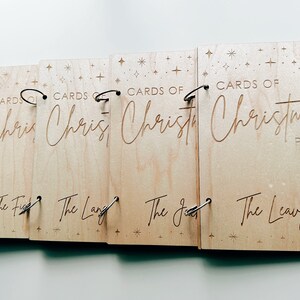 CARDS OF
Christ
The
CARDS OF
Christ
The
CARDS OF
Christ
The
CARDS OF
Christm
The Leav